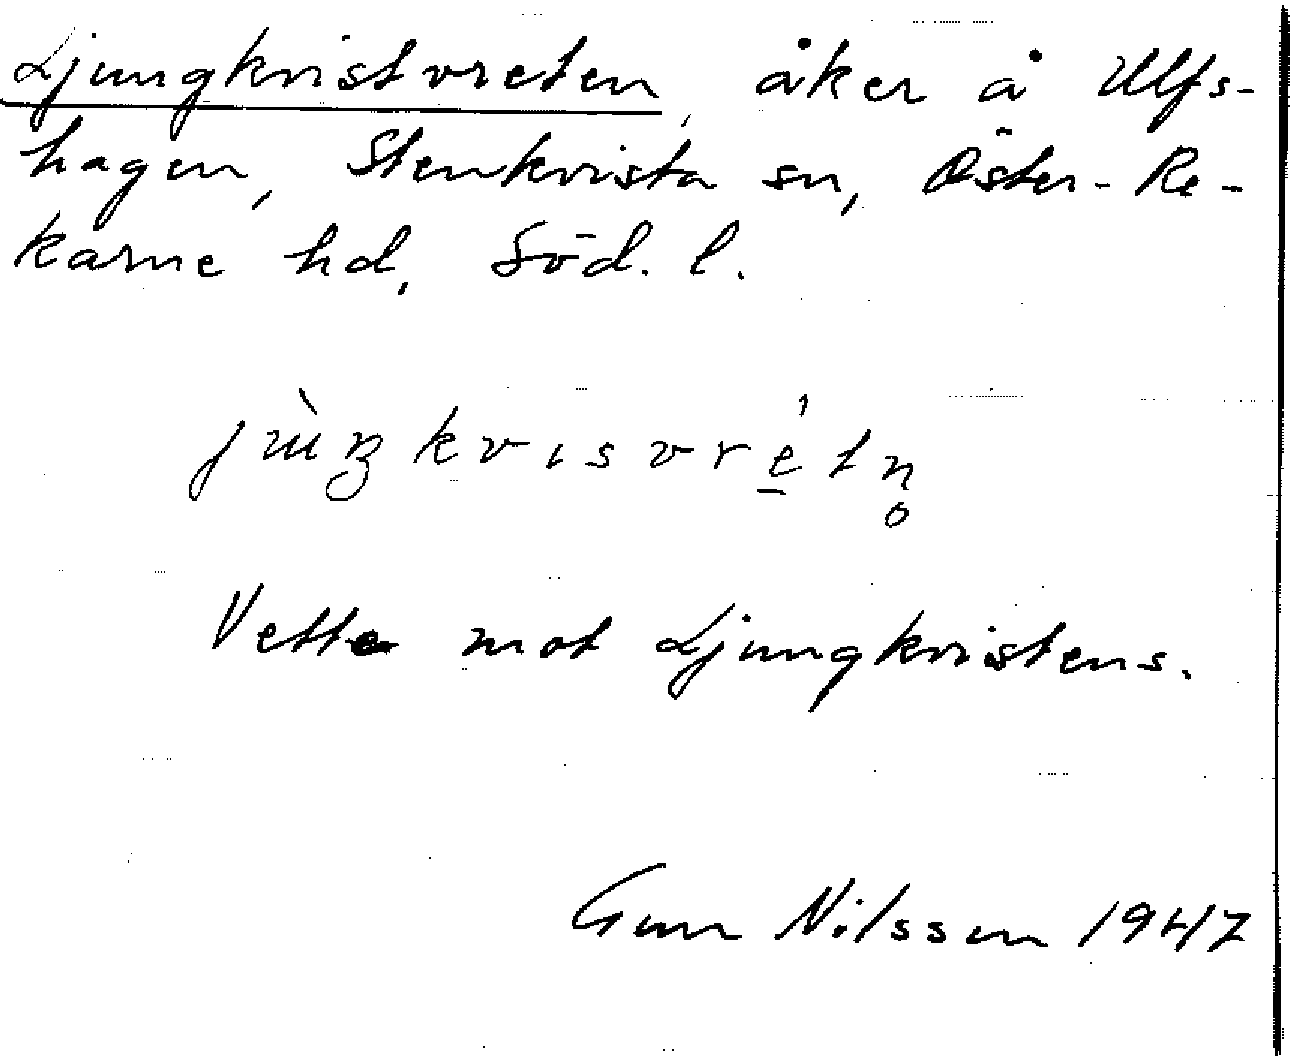 Ljungkvistvreten, åker å Ulfs-
hagen, Stenkvista sn, Öster-Re-
karne hd, Söd. l.
jùŋkvisvré̲tn̥
Vette mot Ljungkvistens.
Gun Nilsson 1947